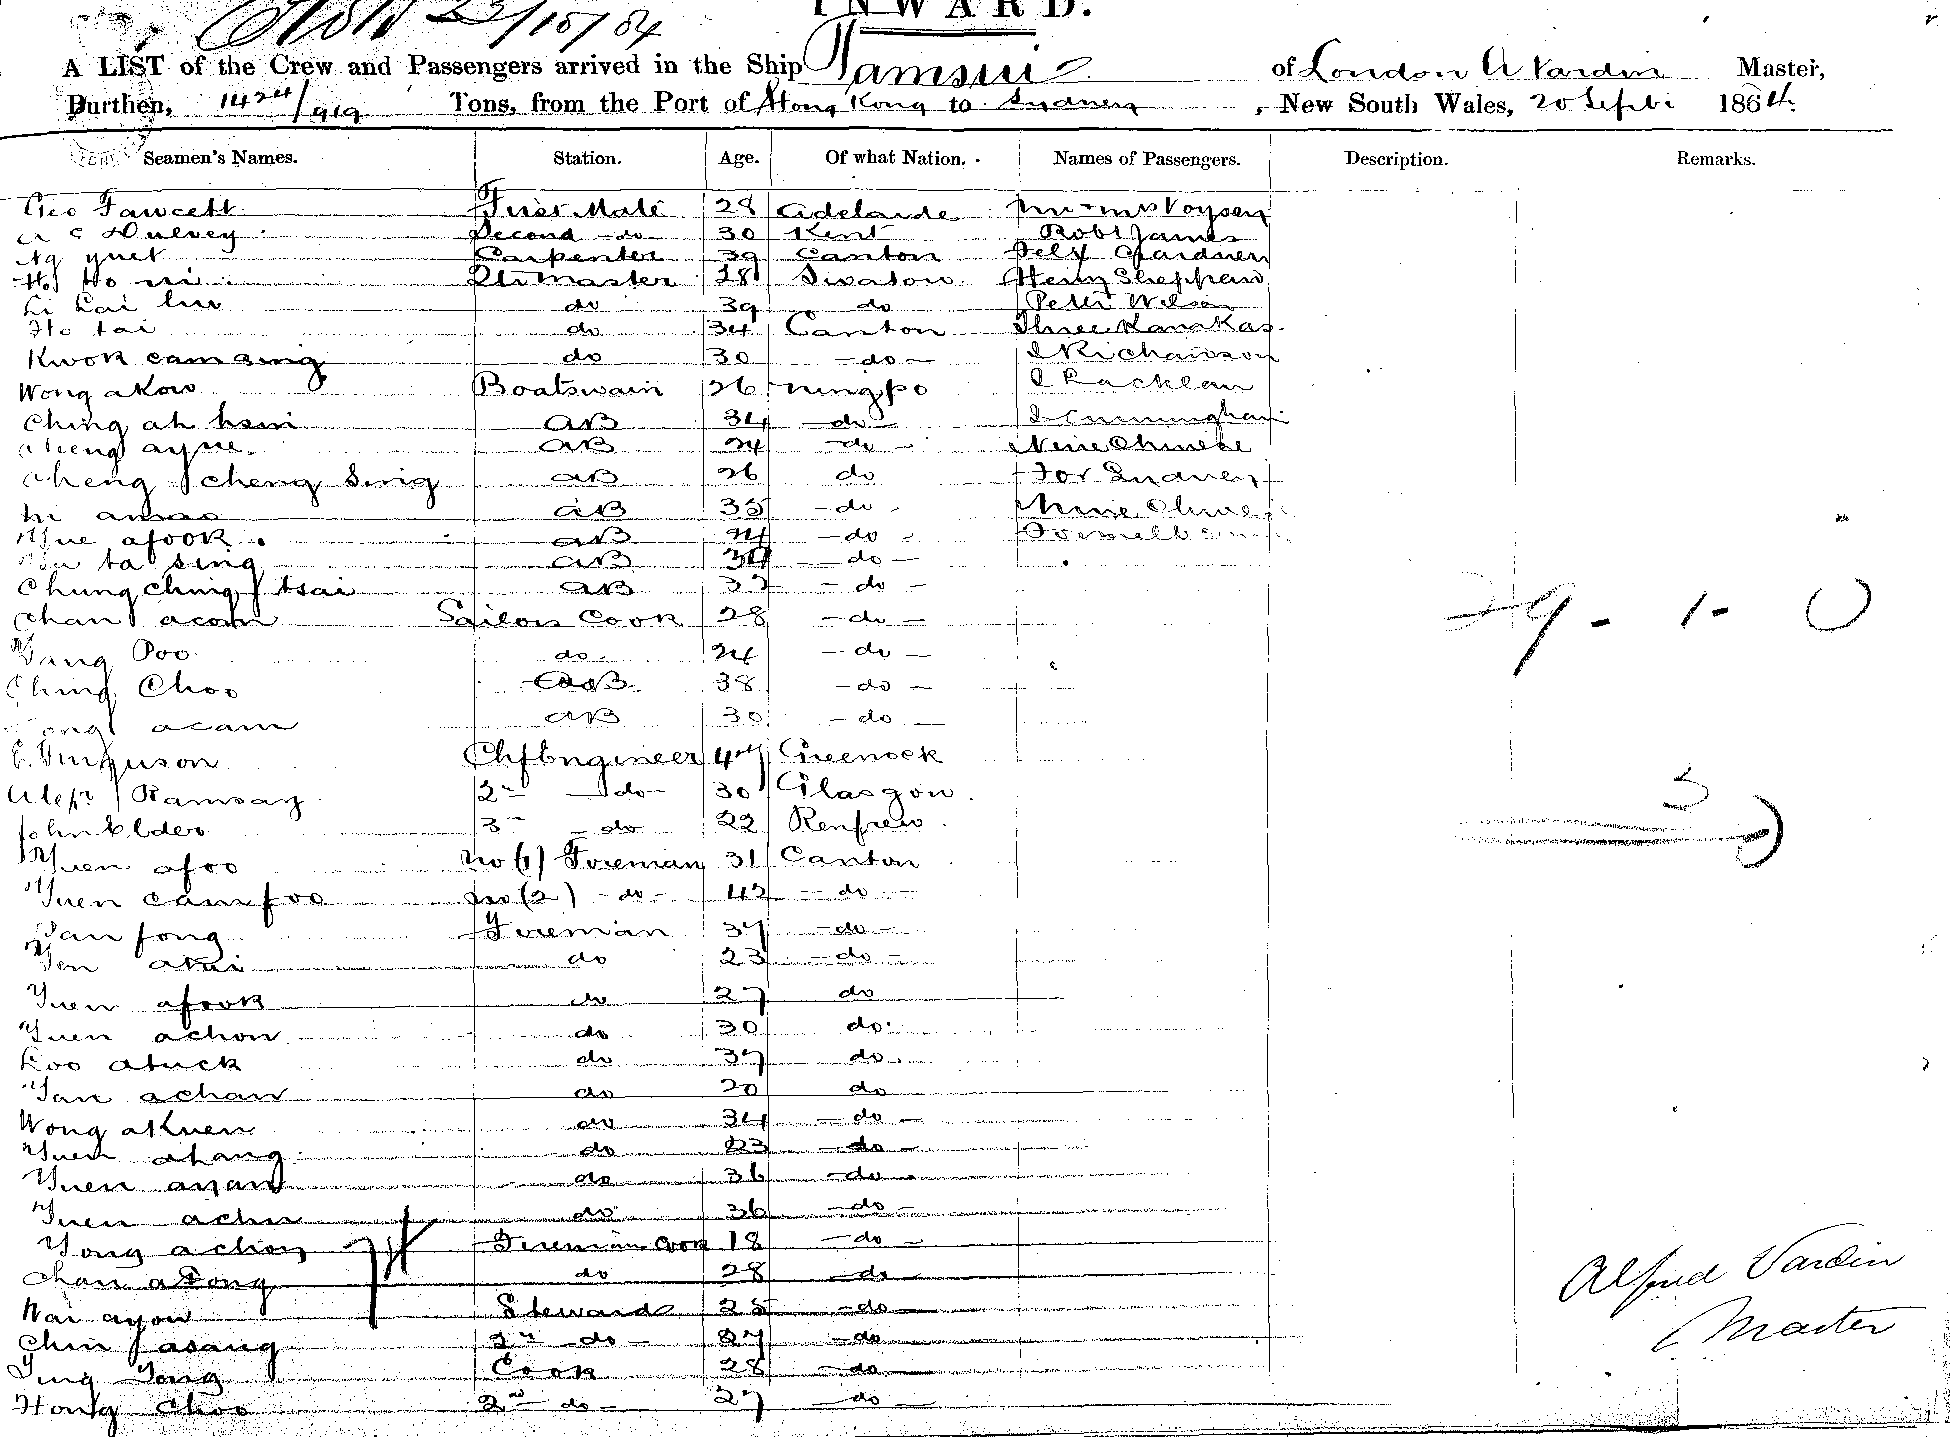 INWARD.
A LIST of the Crew and Passengers arrived in the Ship Tamsui of London A Vardin Master,
Burthen, 1424/919 Tons, from the Port of Hong Kong to Sydney, New South Wales, 20 Septbr 1864
Seamen's Names. Station. Age. Of what Nation. Names of Passengers. Description. Remarks.
Geo Fawcett First Mate 28 Adelaide Mr & Mrs Voysey
Second do 30 Kent Robt James
Carpenter 39 Canton Gardner
Qtr Master 28 Swatow Henry Sheppard
Li Lai do 39 do Peter Wilson
Ho tai do 34 Canton Three Kanakas
Kwok cam sing do 30 do Richardson
Wong akow Boatswain 26 Ningpo
Ching ah hsui AB 34 do J Cunningham
Cheng ayue AB 24 do Nine Chinese
Cheng cheng Sing AB 26 do For Sydney
AB 35 do Nine Chinese
Yue afook AB 24 do For
ta sing AB 34 do
Chung Ching tsai AB do
Chan acam Sailors Cook 28 do
Yang Poo do 24 do
Ching Choo AB 38 do
acam AB 30 do
Ferguson Chf Engineer Greenock
Alexr Ramsay 2nd do 30 Glasgow
John Elder 3 do 22 Renfrew
Yuen afoo No (1) Fireman 31 Canton
Yuen camfoo No (2) do 42 do
Yan fong Fireman 37 do
Yen akui do 23 do
Yuen afook do 27 do
Yuen achon do 30 do
Loo atuck do 37 do
Yan achan do 20 do
Wong akuen do 34 do
Yuen ahang do 23 do
Yuen ayan do 36 do
Yuen achu do 36 do
Yong achoy Firemans Cook 18 do
Chan do 28 do
Wai ayow Steward 25 do
Chin asang 2nd do 27 do
Ting Tong Cook 28 do
Hong Choo 2nd do 27 do
29 - 1 - 0
3
Alfred Vardin
Master